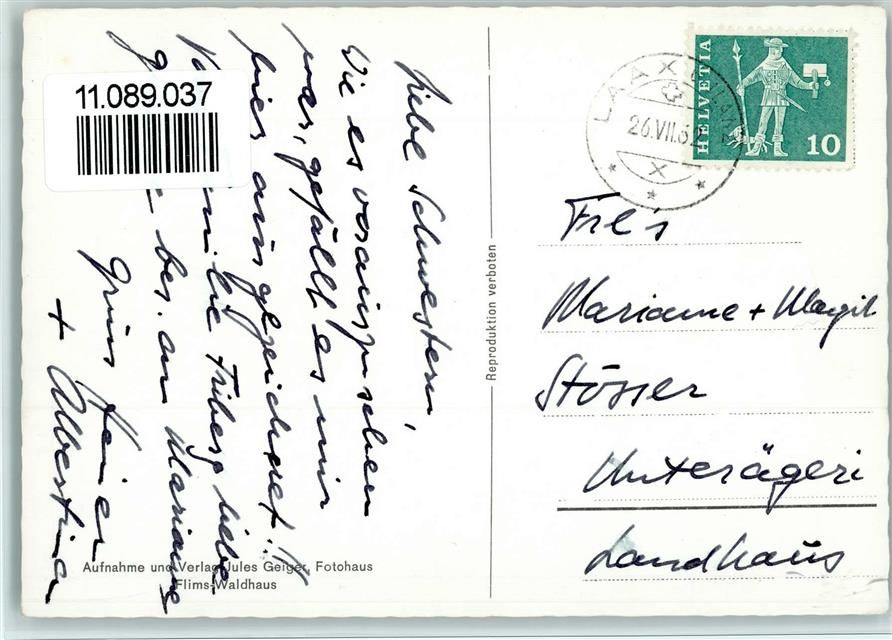 11.089.037
Liebe Schwestern,
Wie es vorauszusehen
war, gefällt es mir
hier ausgezeichnet!!
Familie Friberg
bes. an Marianne
Gruss
+ Albertina
Aufnahme und Verlag Jules Geiger, Fotohaus
Flims-Waldhaus
Reproduktion verboten
LAAX
26.VII.62
HELVETIA
10
Frl's
Marianne + Margit
Stösser
Unterägeri
Landhaus